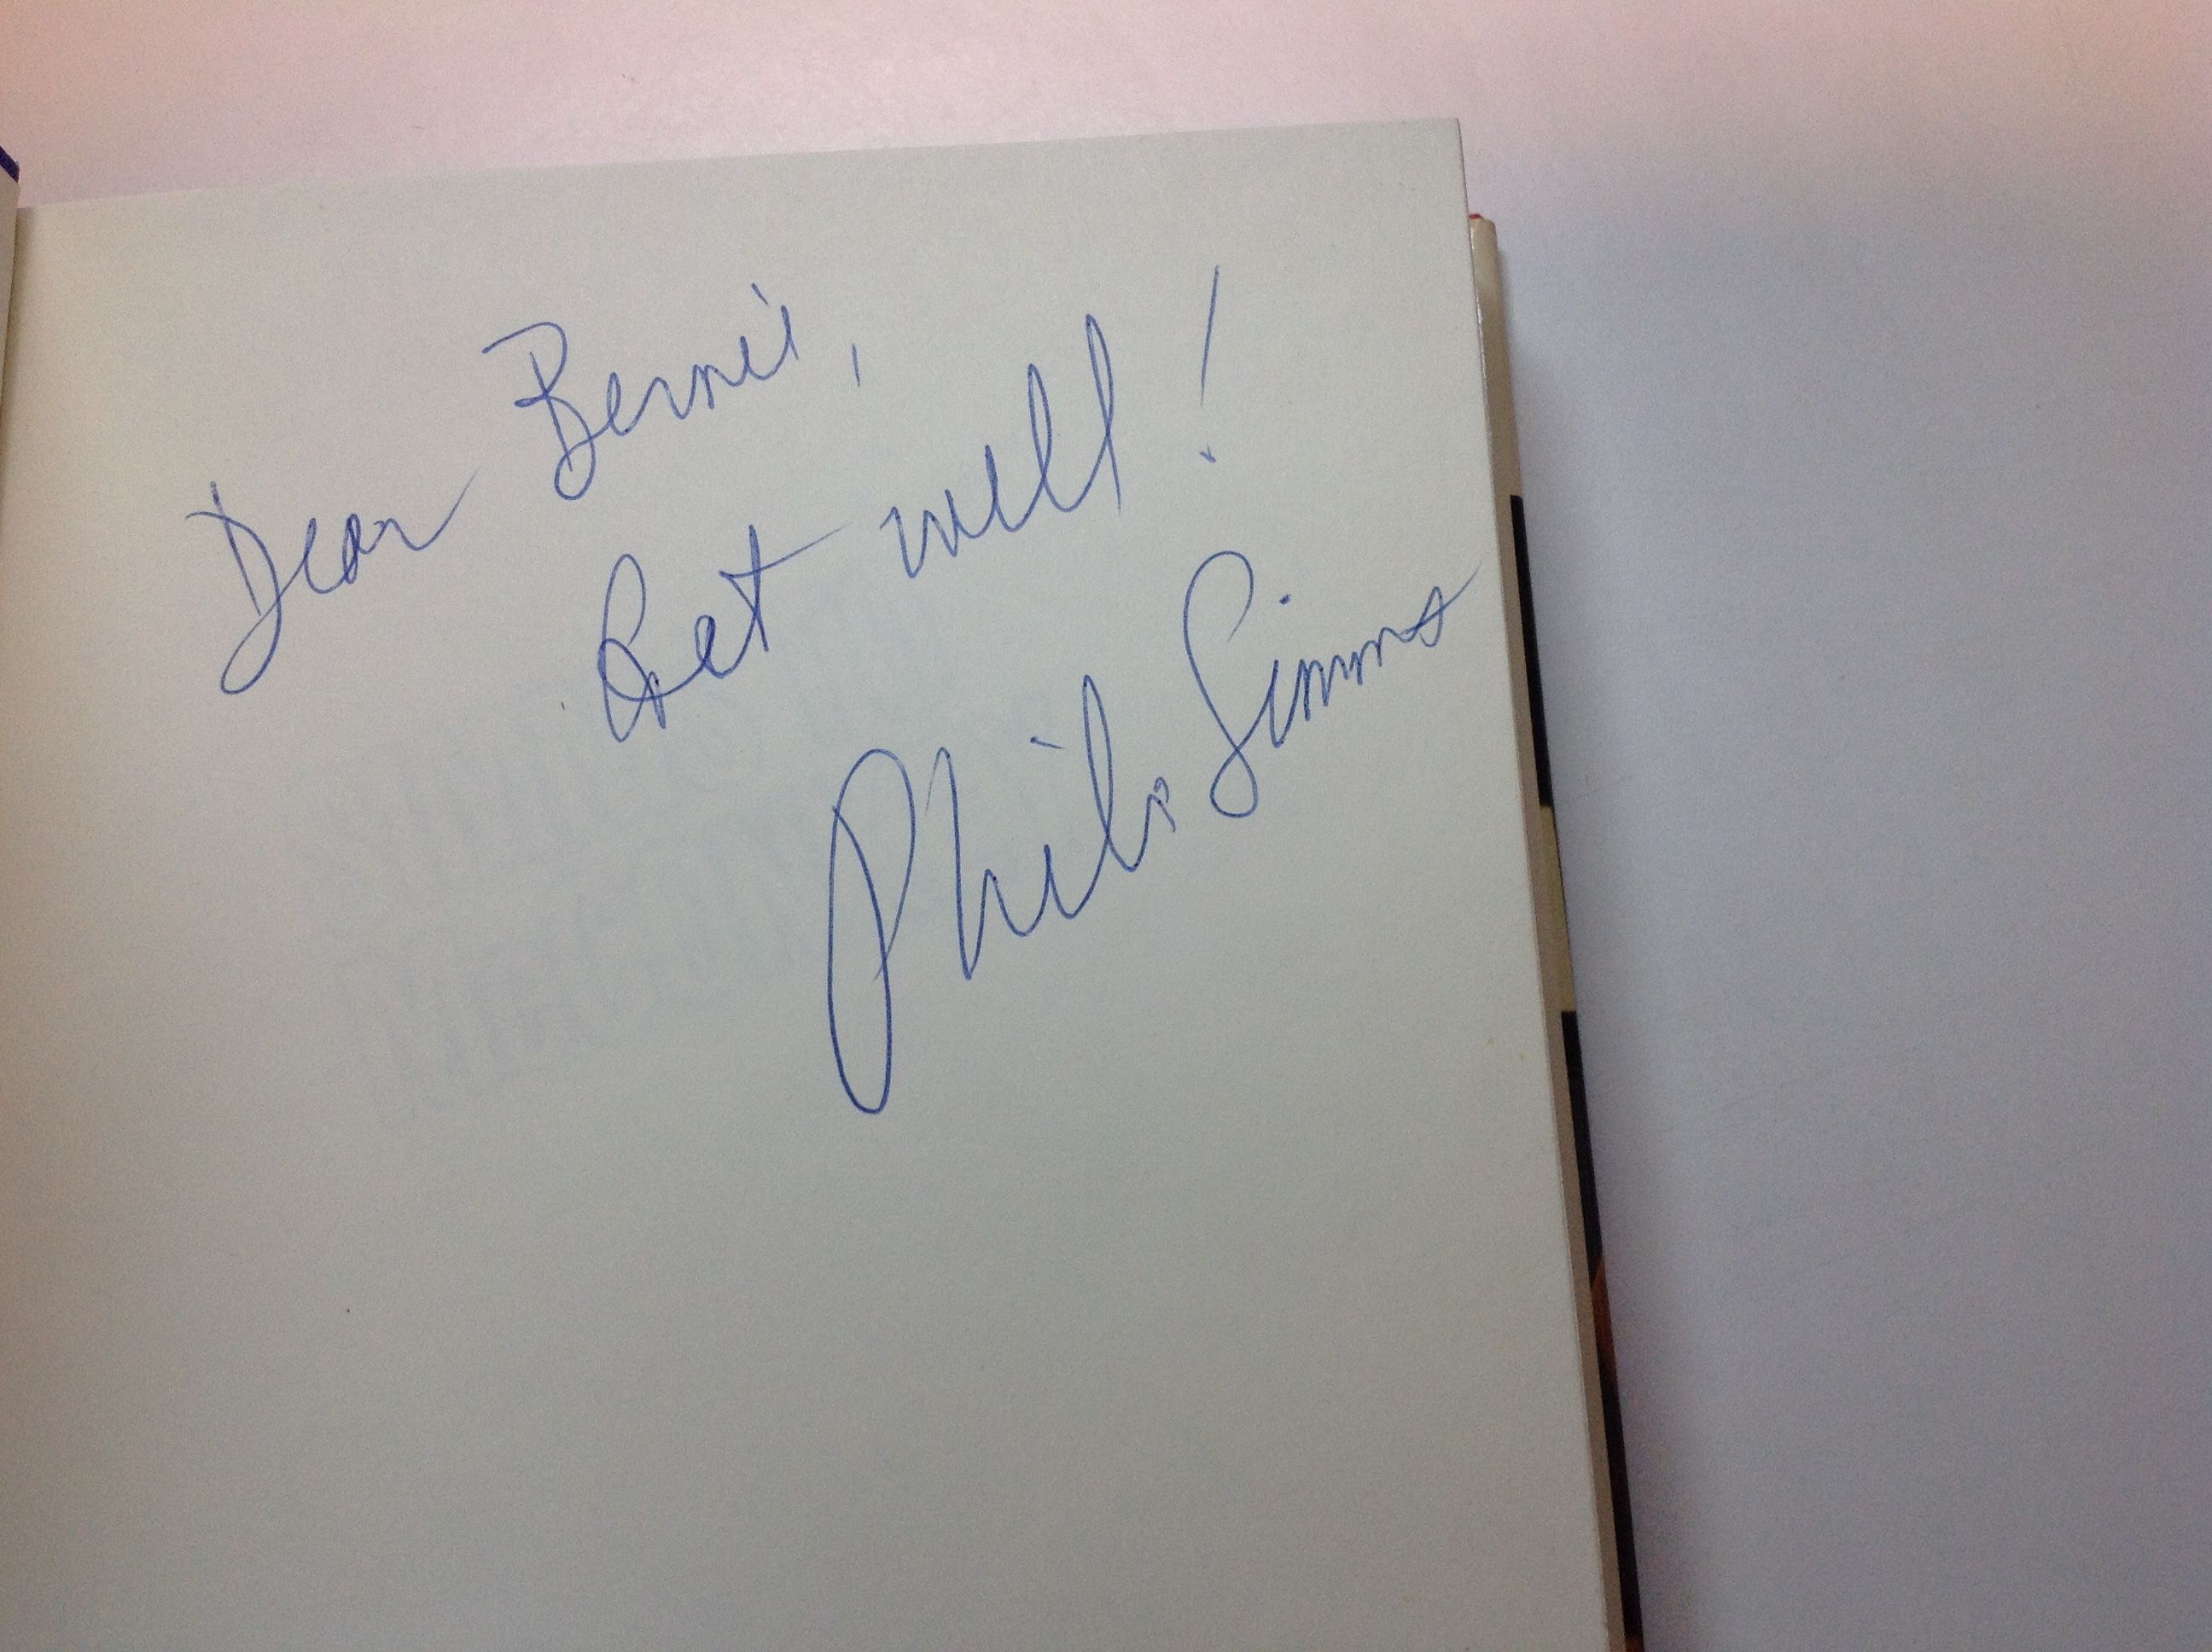 Dear Bernie,
Get well!
Phil Simms